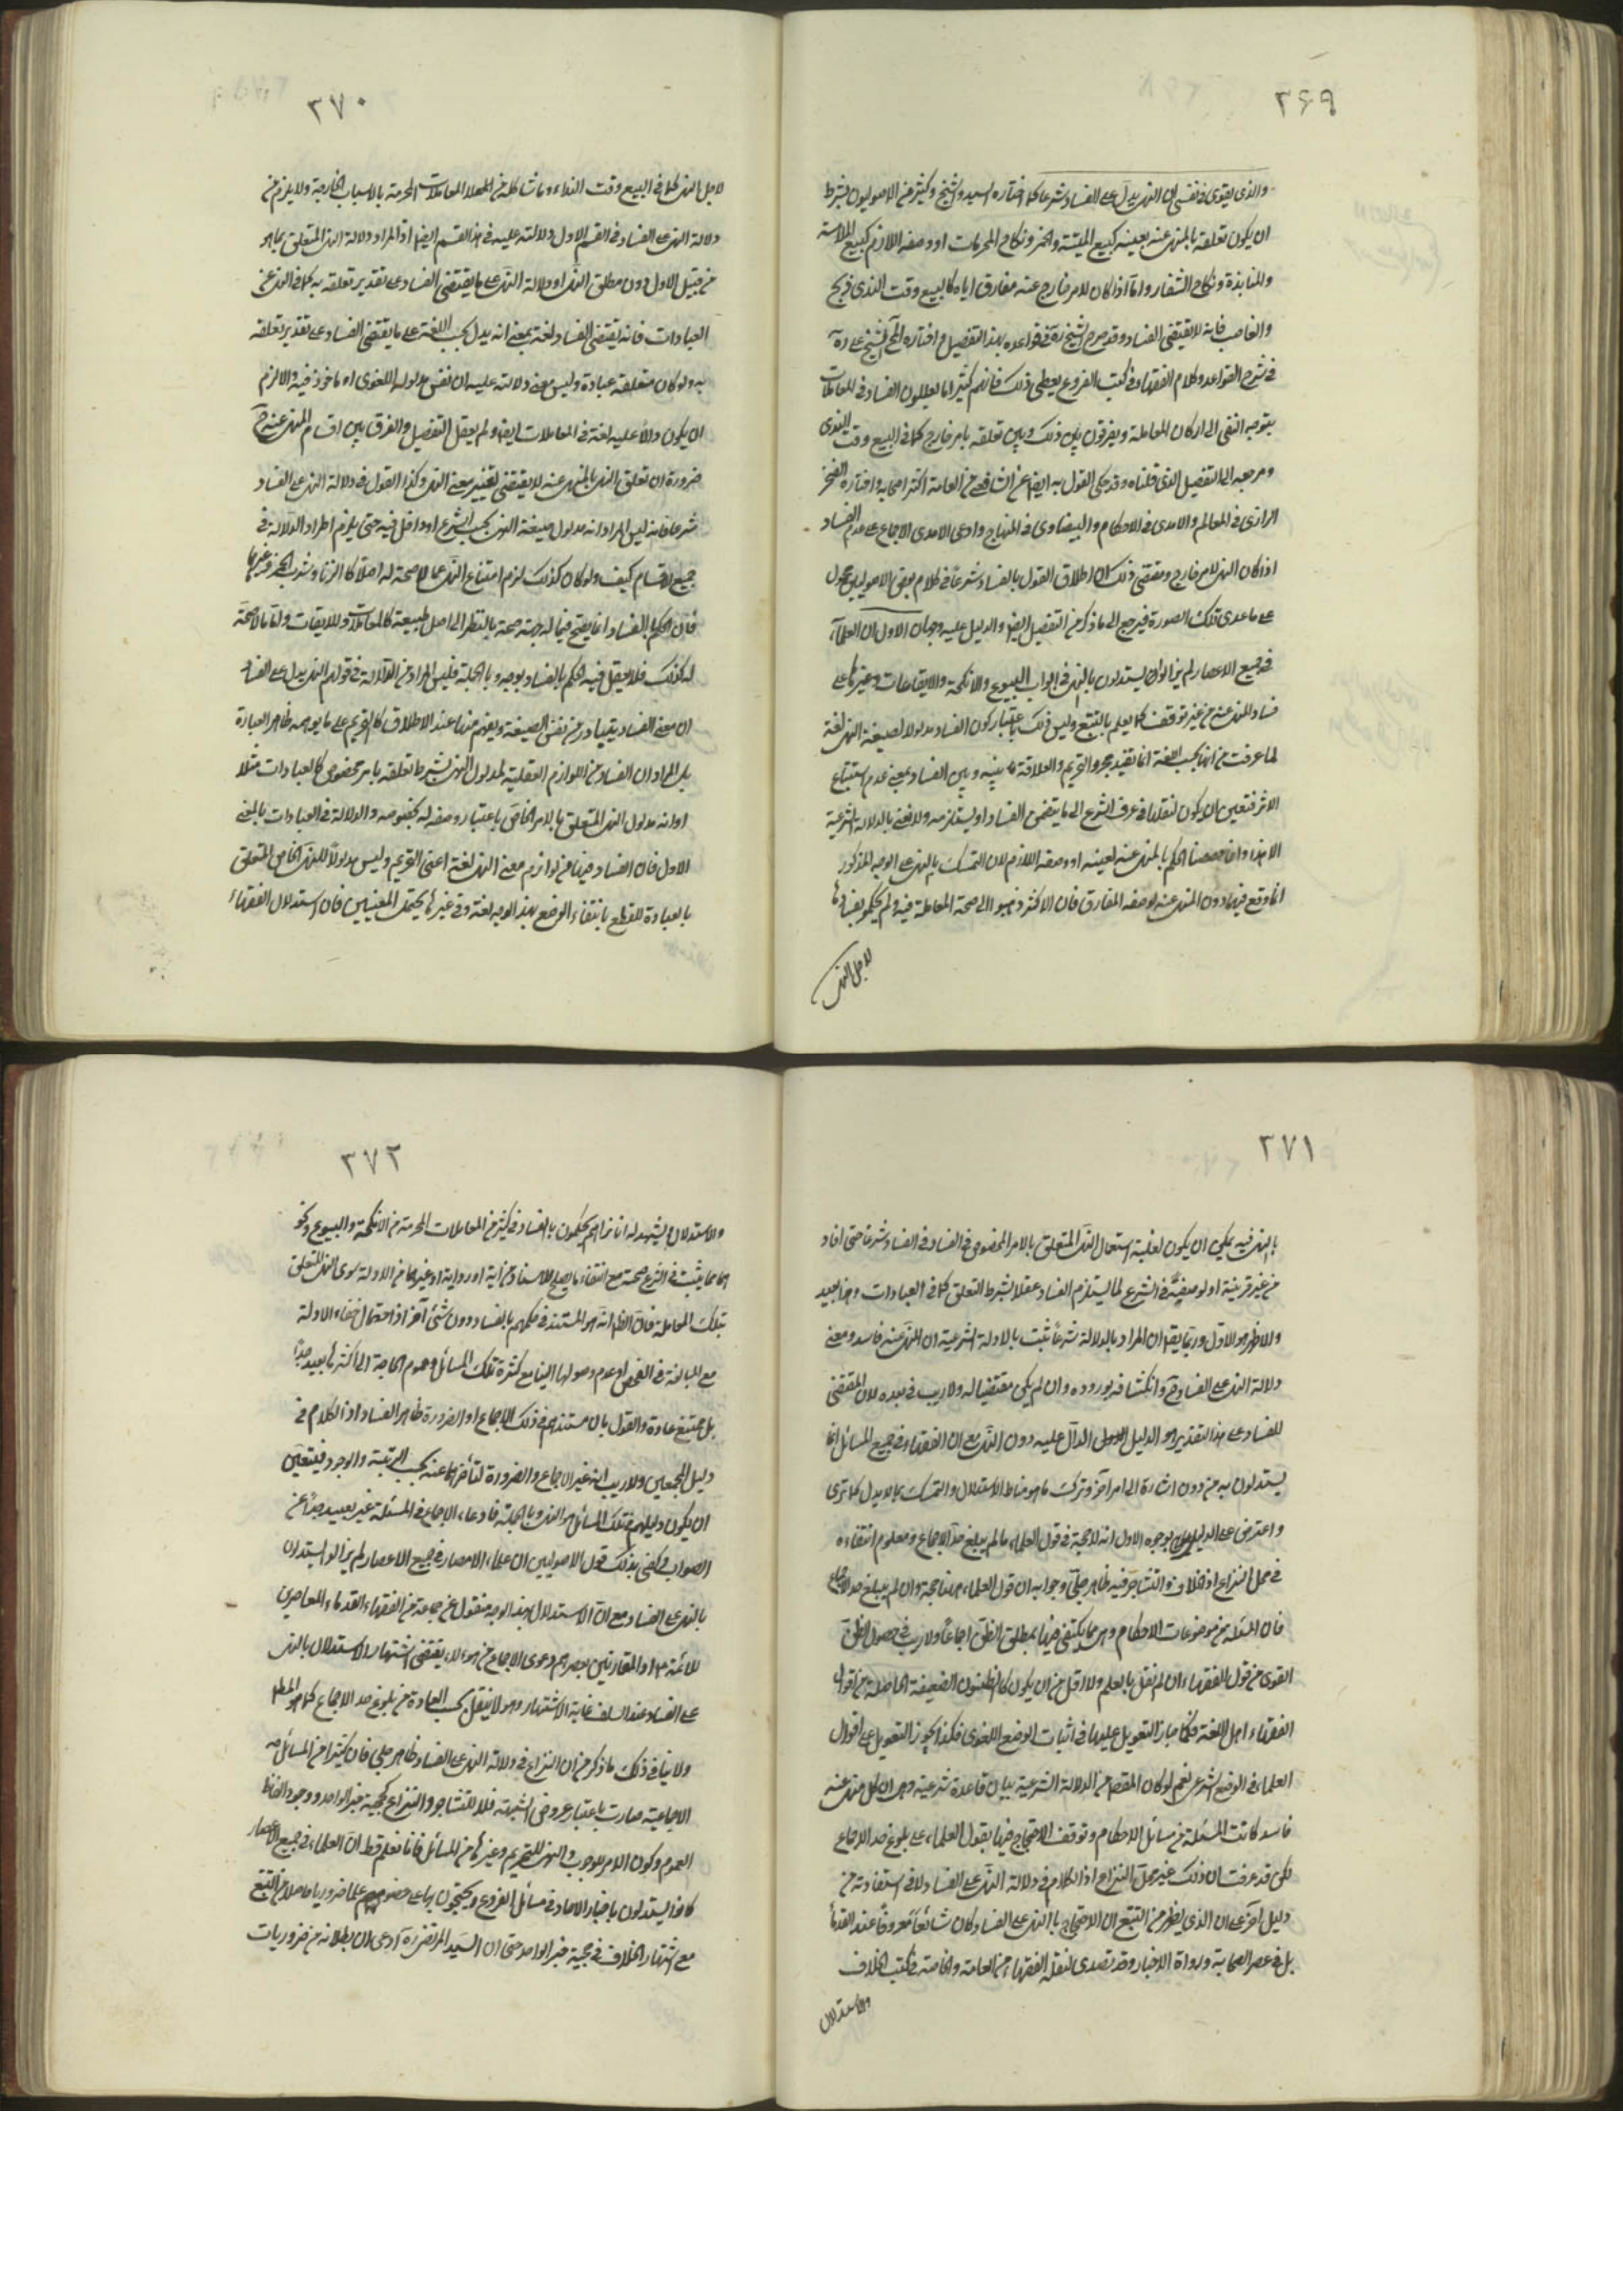 ٣٦٩
والذي يقوى في نفسي ان النهي يدل على الفساد شرعا كما اختاره السيد والشيخ وكثير من الاصوليين بشرط
ان يكون تعلقه بالمنهي عنه بعينه كبيع الميتة والخمر ونكاح المحرمات او وصفه اللازم كبيع الملامسة
والمنابذة ونكاح الشغار واما اذا كان لامر خارج عنه مفارق اياه كالبيع وقت الندى
فانه لا يقتضي الفساد وقد صرح الشيخ ره في قواعده بهذا التفصيل و اختاره الشيخ علي ره
في شرح القواعد وكلام الفقهاء في كتب الفروع يعطي ذلك فانهم كثيرا ما يعللون الفساد في المعاملات
بتوجه النهي الى اركان المعاملة ويفرقون بين ذلك وبين تعلقه بامر خارج كما في البيع وقت الندى
ومرجعه الى التفصيل الذي قلناه وقد حكي القول به ايضا عن الشافعي من العامة اكثر اصحابه واختاره الفخر
الرازي في المعالم والامدي في الاحكام والبيضاوي في المنهاج وادعى الامدي الاجماع على عدم الفساد
اذا كان النهي لامر خارج ومقتضى ذلك ان اطلاق القول بالفساد شرعا في كلام بعض الاصوليين محمول
على ما عدى تلك الصورة فيرجع الى ما ذكر من التفصيل ايضا والدليل عليه وجهان الاول ان العلماء
في جميع الاعصار لم يزالوا يستدلون بالنهي في ابواب البيوع والانكحة والايقاعات وغيرها على
فساد المنهي عنه من غير توقف كما يعلم بالتتبع وليس ذلك باعتبار كون الفساد مدلولا لصيغة النهي لغة
لما عرفت من انها بحسب اللغة انما تفيد مجرد التحريم والعلاقة ما بينه وبين الفساد بمعنى عدم استتباع
الاثر فتعين ان يكون لنقلها في عرف الشرع الى ما يتضمن الفساد او يستلزمه ولا نعني بالدلالة الشرعية
الا هذا وانما خصصنا الحكم بالمنهي عنه لعينه او وصفه اللازم لان التمسك بالنهي على الوجه المذكور
انما وقع فيهما دون المنهي عنه لوصفه المفارق فان الاكثر ذهبوا الى صحة المعاملة فيه ولم يحكموا بفسادها
لاجل النهي
٣٧٠
لاجل النهي كما في البيع وقت النداء وما شاكله من المعاملات المحرمة بالاسباب الخارجة ولا يلزم من
دلالة النهي على الفساد في القسم الاول دلالته عليه في هذا القسم ايضا اذ المراد دلالة النهي المتعلق بما هو
من قبيل الاول دون مطلق النهي او دلالة النهي على ما يقتضي الفساد على تقدير تعلقه به كما في النهي عن
العبادات فانه يقتضي الفساد لغة بمعنى انه يدل بحسب اللغة على ما يقتضي الفساد على تقدير تعلقه
به ولو كان متعلقه عبادة وليس معنى دلالته عليه ان نفس مدلوله اللغوي او ماخوذ فيه والا لزم
ان يكون دالا عليه لغة في المعاملات ايضا ولم يعقل التفصيل والفرق بين اقسام المنهي عنه ح
ضرورة ان تعلق النهي بالمنهي عنه لا يقتضي تغيير معنى النهي وكذا القول في دلالة النهي على الفساد
شرعا فانه ليس المراد انه مدلول صيغة النهي بحسب الشرع او داخل فيه حتى يلزم اطراد الدلالة في
جميع الاقسام كيف ولو كان كذلك لزم امتناع النهي عما لا صحة له اصلا كالزنا وشرب الخمر وغيرها
فان الحكم بالفساد انما يصح فيما له جهة صحة بالنظر الى اصل طبيعته كالمعاملات والايقاعات واما ما لا صحة
له كذلك فلا يعقل فيه الحكم بالفساد بوجه وبالجملة فليس المراد من الدلالة في قولهم النهي يدل على الفساد
ان معنى الفساد يتبادر من نفس الصيغة ويفهم منها عند الاطلاق كالتحريم على ما يوهمه ظاهر العبارة
بل المراد ان الفساد من اللوازم العقلية لمدلول النهي بشرط تعلقه بامر مخصوص كالعبادات مثلا
او انه مدلول النهي المتعلق بالامر الخاص باعتبار وصفه له بخصوصه والدلالة في العبادات بالمعنى
الاول فان الفساد فيها من لوازم معنى النهي لغة اعني التحريم وليس مدلولا للنهي الخاص المتعلق
بالعبادة للقطع بانتفاء الوضع بهذا الوجه لغة وفي غيرها يحتمل المعنيين فان استدلال الفقهاء
٣٧١
بالنهي فيه يمكن ان يكون لغلبة استعمال النهي المتعلق بالامر المخصوص في الفساد شرعا حتى افاد
من غير قرينة او لوضعه في الشرع لما يستلزم الفساد عقلا بشرط التعلق كما في العبادات وهذا بعيد
والاظهر هو الاول وربما يقال ان المراد بالدلالة شرعا ثبت بالادلة الشرعية ان المنهي عنه فاسد ومعنى
دلالة النهي على الفساد ح وانكشافه بوروده وان لم يكن مقتضيا له ولا ريب في بعده لان المقتضي
للفساد على هذا التقدير هو الدليل الدال عليه دون النهي مع ان الفقهاء في جميع المسائل انما
يستدلون به من دون اشارة الى امر آخر وترك ما هو مناط الاستدلال والتمسك بما لا يدل كما ترى
واعترض على الدليل بوجوه الاول انه لا حجة في قول العلماء ما لم يبلغ حد الاجماع ومعلوم انتفاءه
في محل النزاع اذ الخلاف والتشاجر فيه ظاهر جلي وجوابه ان قول العلماء هنا حجة وان لم يبلغ حد الاجماع
فان المسئلة من موضوعات الاحكام وهي مما يكتفى فيها بمطلق الظن اجماعا ولا ريب في حصول الظن
القوي من قول الفقهاء ان لم نقل بالعلم ولا اقل من ان يكون كالظنون الضعيفة الحاصلة من اقوال
الفقهاء اهل اللغة فكما جاز التعويل عليها في اثبات الوضع اللغوي فكذا يجوز التعويل على اقوال
العلماء في الوضع الشرعي نعم لو كان المقصد من الدلالة الشرعية بيان قاعدة شرعية وهي ان كل منهي عنه
فاسد كانت المسئلة من مسائل الاحكام وتوقف الاحتجاج فيها بقول العلماء على بلوغ حد الاجماع
لكن قد عرفت ان ذلك غير محل النزاع اذ الكلام في دلالة النهي على الفساد لا في استفادته من
دليل آخر على ان الذي يظهر من التتبع ان الاحتجاج بالنهي على الفساد كان شائعا معروفا عند القدماء
بل في عصر الصحابة ورواة الاخبار وقد تصدى لنقله الفقهاء من العامة والخاصة في كتب الخلاف
والاستدلال
٣٧٢
والاستدلال ويشهد له انا نراهم يحكمون بالفساد في كثير من المعاملات المحرمة من الانكحة والبيوع ونحو
مما يثبت في الشرع صحته مع انتفاء ما يصلح للاستناد من آية او رواية او غيرهما من الادلة سوى النهي المتعلق
بتلك المعاملة فان الظاهر انه هو المستند في حكمهم بالفساد دون شئ آخر اذ احتمال خفاء الادلة
مع المبالغة في الفحص او عدم وصولها الينا مع كثرة تلك المسائل وعموم الحاجة الى اكثرها بعيد جدا
بل ممتنع عادة والقول بان مستندهم في ذلك الاجماع او الضرورة ظاهر الفساد اذ الكلام في
دليل المجمعين ولا ريب انه غير الاجماع والضرورة لتأخرهما عنه بحسب الرتبة والوجود فيتعين
ان يكون دليلهم في تلك المسائل هو النهي وبالجملة فادعاء الاجماع في المسئلة غير بعيد جدا عن
الصواب وكفى بذلك قول الاصوليين ان علماء الامصار في جميع الاعصار لم يزالوا يستدلون
بالنهي على الفساد مع ان الاستدلال بهذا الوجه منقول عن جماعة من الفقهاء القدماء المعاصرين
للائمة ع او المقاربين بعصرهم ودعوى الاجماع من هؤلاء يقتضي اشتهار الاستدلال بالنهي
على الفساد عند السلف غاية الاشتهار وهو لا ينفك بحسب العادة من بلوغ حد الاجماع كما هو المط
ولا ينافي ذلك ما ذكر من ان النزاع في دلالة النهي على الفساد ظاهر جلي فان كثيرا من المسائل
الاجماعية صارت باعتبار عروض الشبهة محلا للتشاجر والنزاع كحجية خبر الواحد ووجود الفاظ
العموم وكون الامر للوجوب والنهي للتحريم وغيرها من المسائل فانا نعلم قطعا ان العلماء في جميع الاعصار
كانوا يستدلون باخبار الاحاد في مسائل الفروع ويحتجون بها على خصومهم علما ضروريا حاصلا من التتبع
مع اشتهار الخلاف في حجية خبر الواحد حتى ان السيد المرتضى ره ادعى ان بطلانه من ضروريات